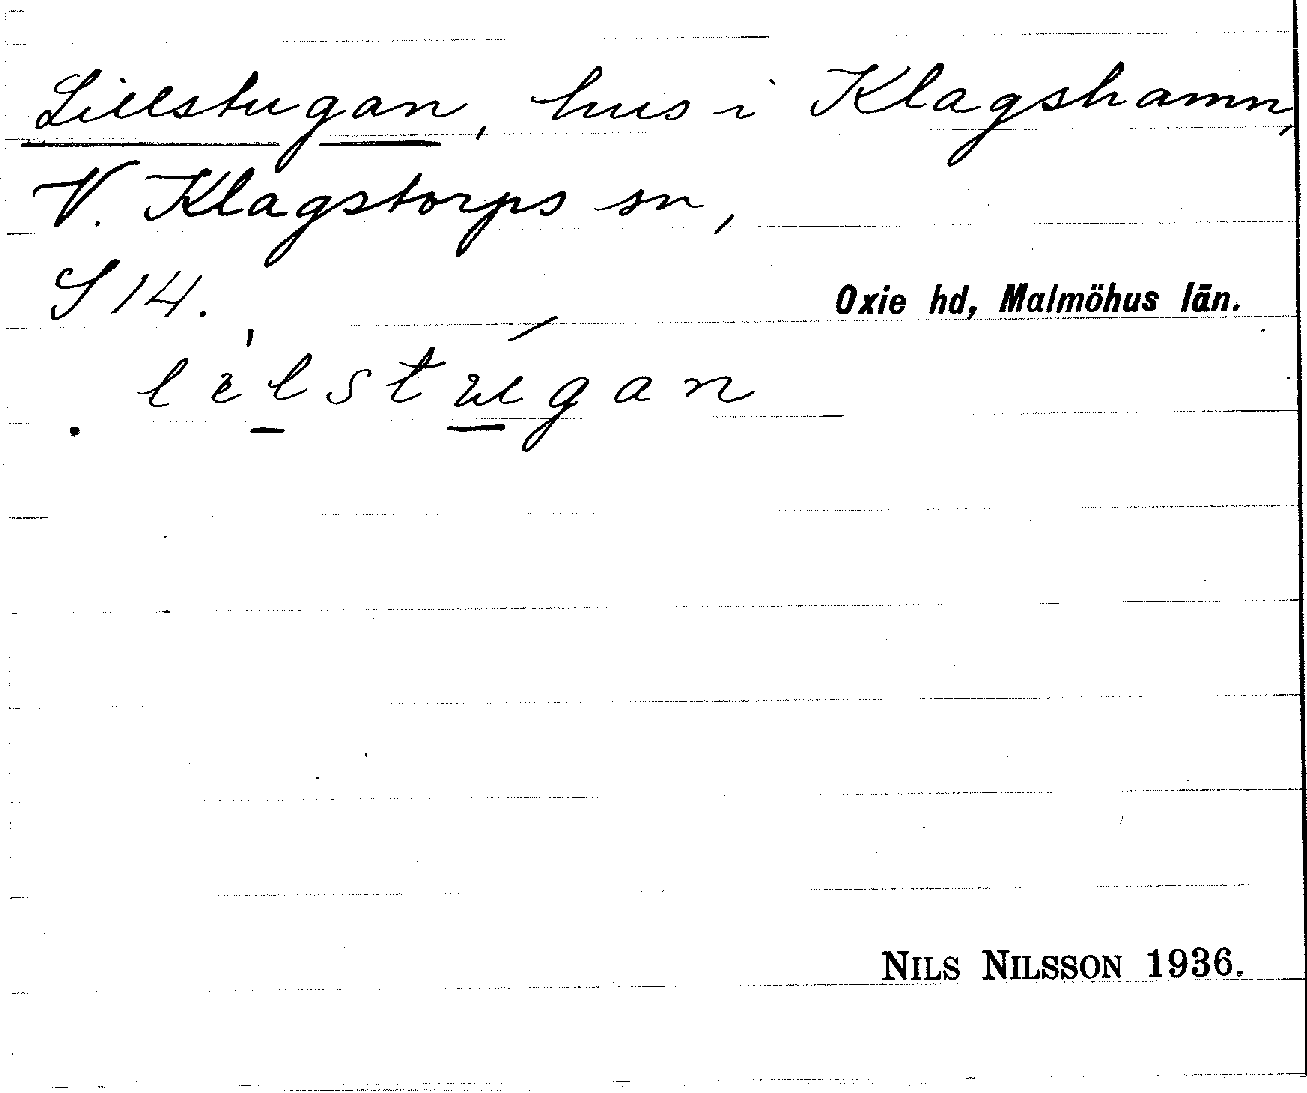 Lillstugan, hus i Klagshamn,
V. Klagstorps sn,
S 14.
Oxie hd, Malmöhus län.
NILS NILSSON 1936.